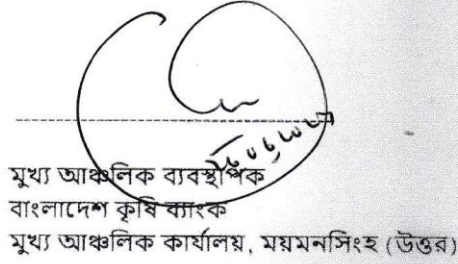 মুখ্য আঞ্চলিক ব্যবস্থাপক
বাংলাদেশ কৃষি ব্যাংক
মুখ্য আঞ্চলিক কার্যালয়, ময়মনসিংহ (উত্তর)